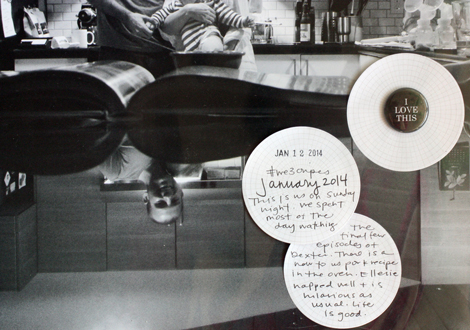 I
LOVE
THIS
JAN 12 2014
January 2014
This is us on Sunday
night we spent
most of the
day watching
the
final few
episodes of
Dexter. There is a
new to us pork recipe
in the oven. Ellerie
napped well + is
hilarious as
usual. Life
is good.